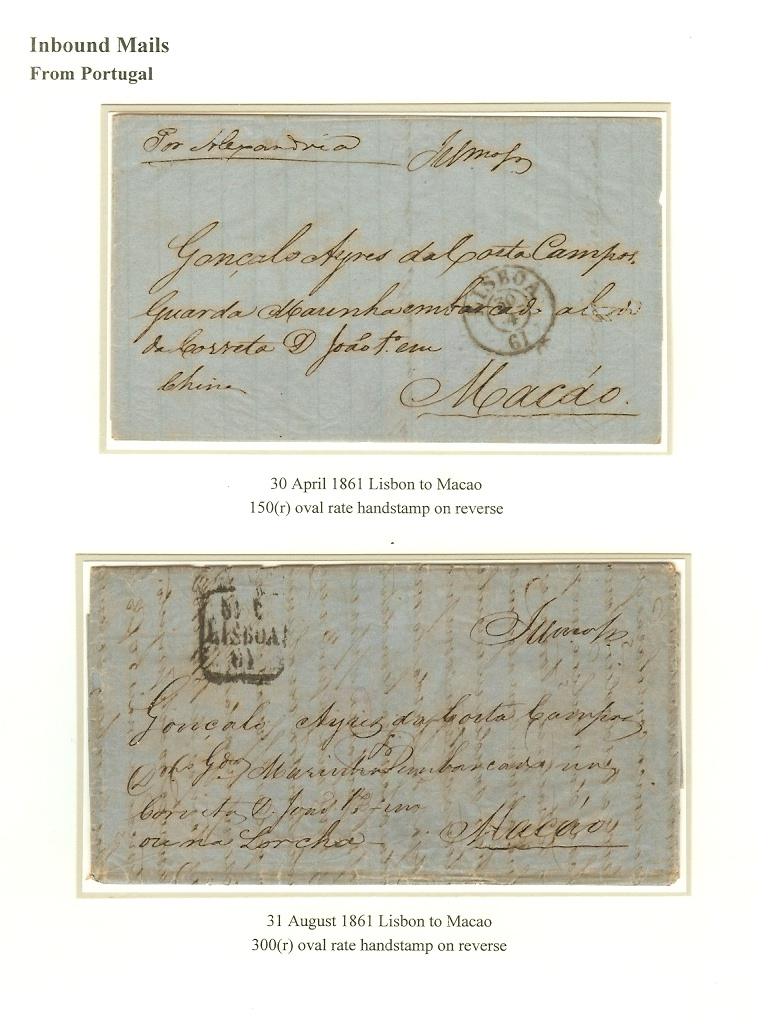 Inbound Mails
From Portugal
Por Alexandria
Illmo Sr
Gonçalo Ayres da Costa Campos.
Guarda Marinha embarcado a bordo
da Corveta D João 1º em
China
Macáo.
LISBOA
30
4
61
30 April 1861 Lisbon to Macao
150(r) oval rate handstamp on reverse
LISBOA
61
Illmo Sr
Gonçalo Ayres da Costa Campos
Marinha embarcado na
Corveta D. João 1º em
ou na Lorcha
Macáo
31 August 1861 Lisbon to Macao
300(r) oval rate handstamp on reverse